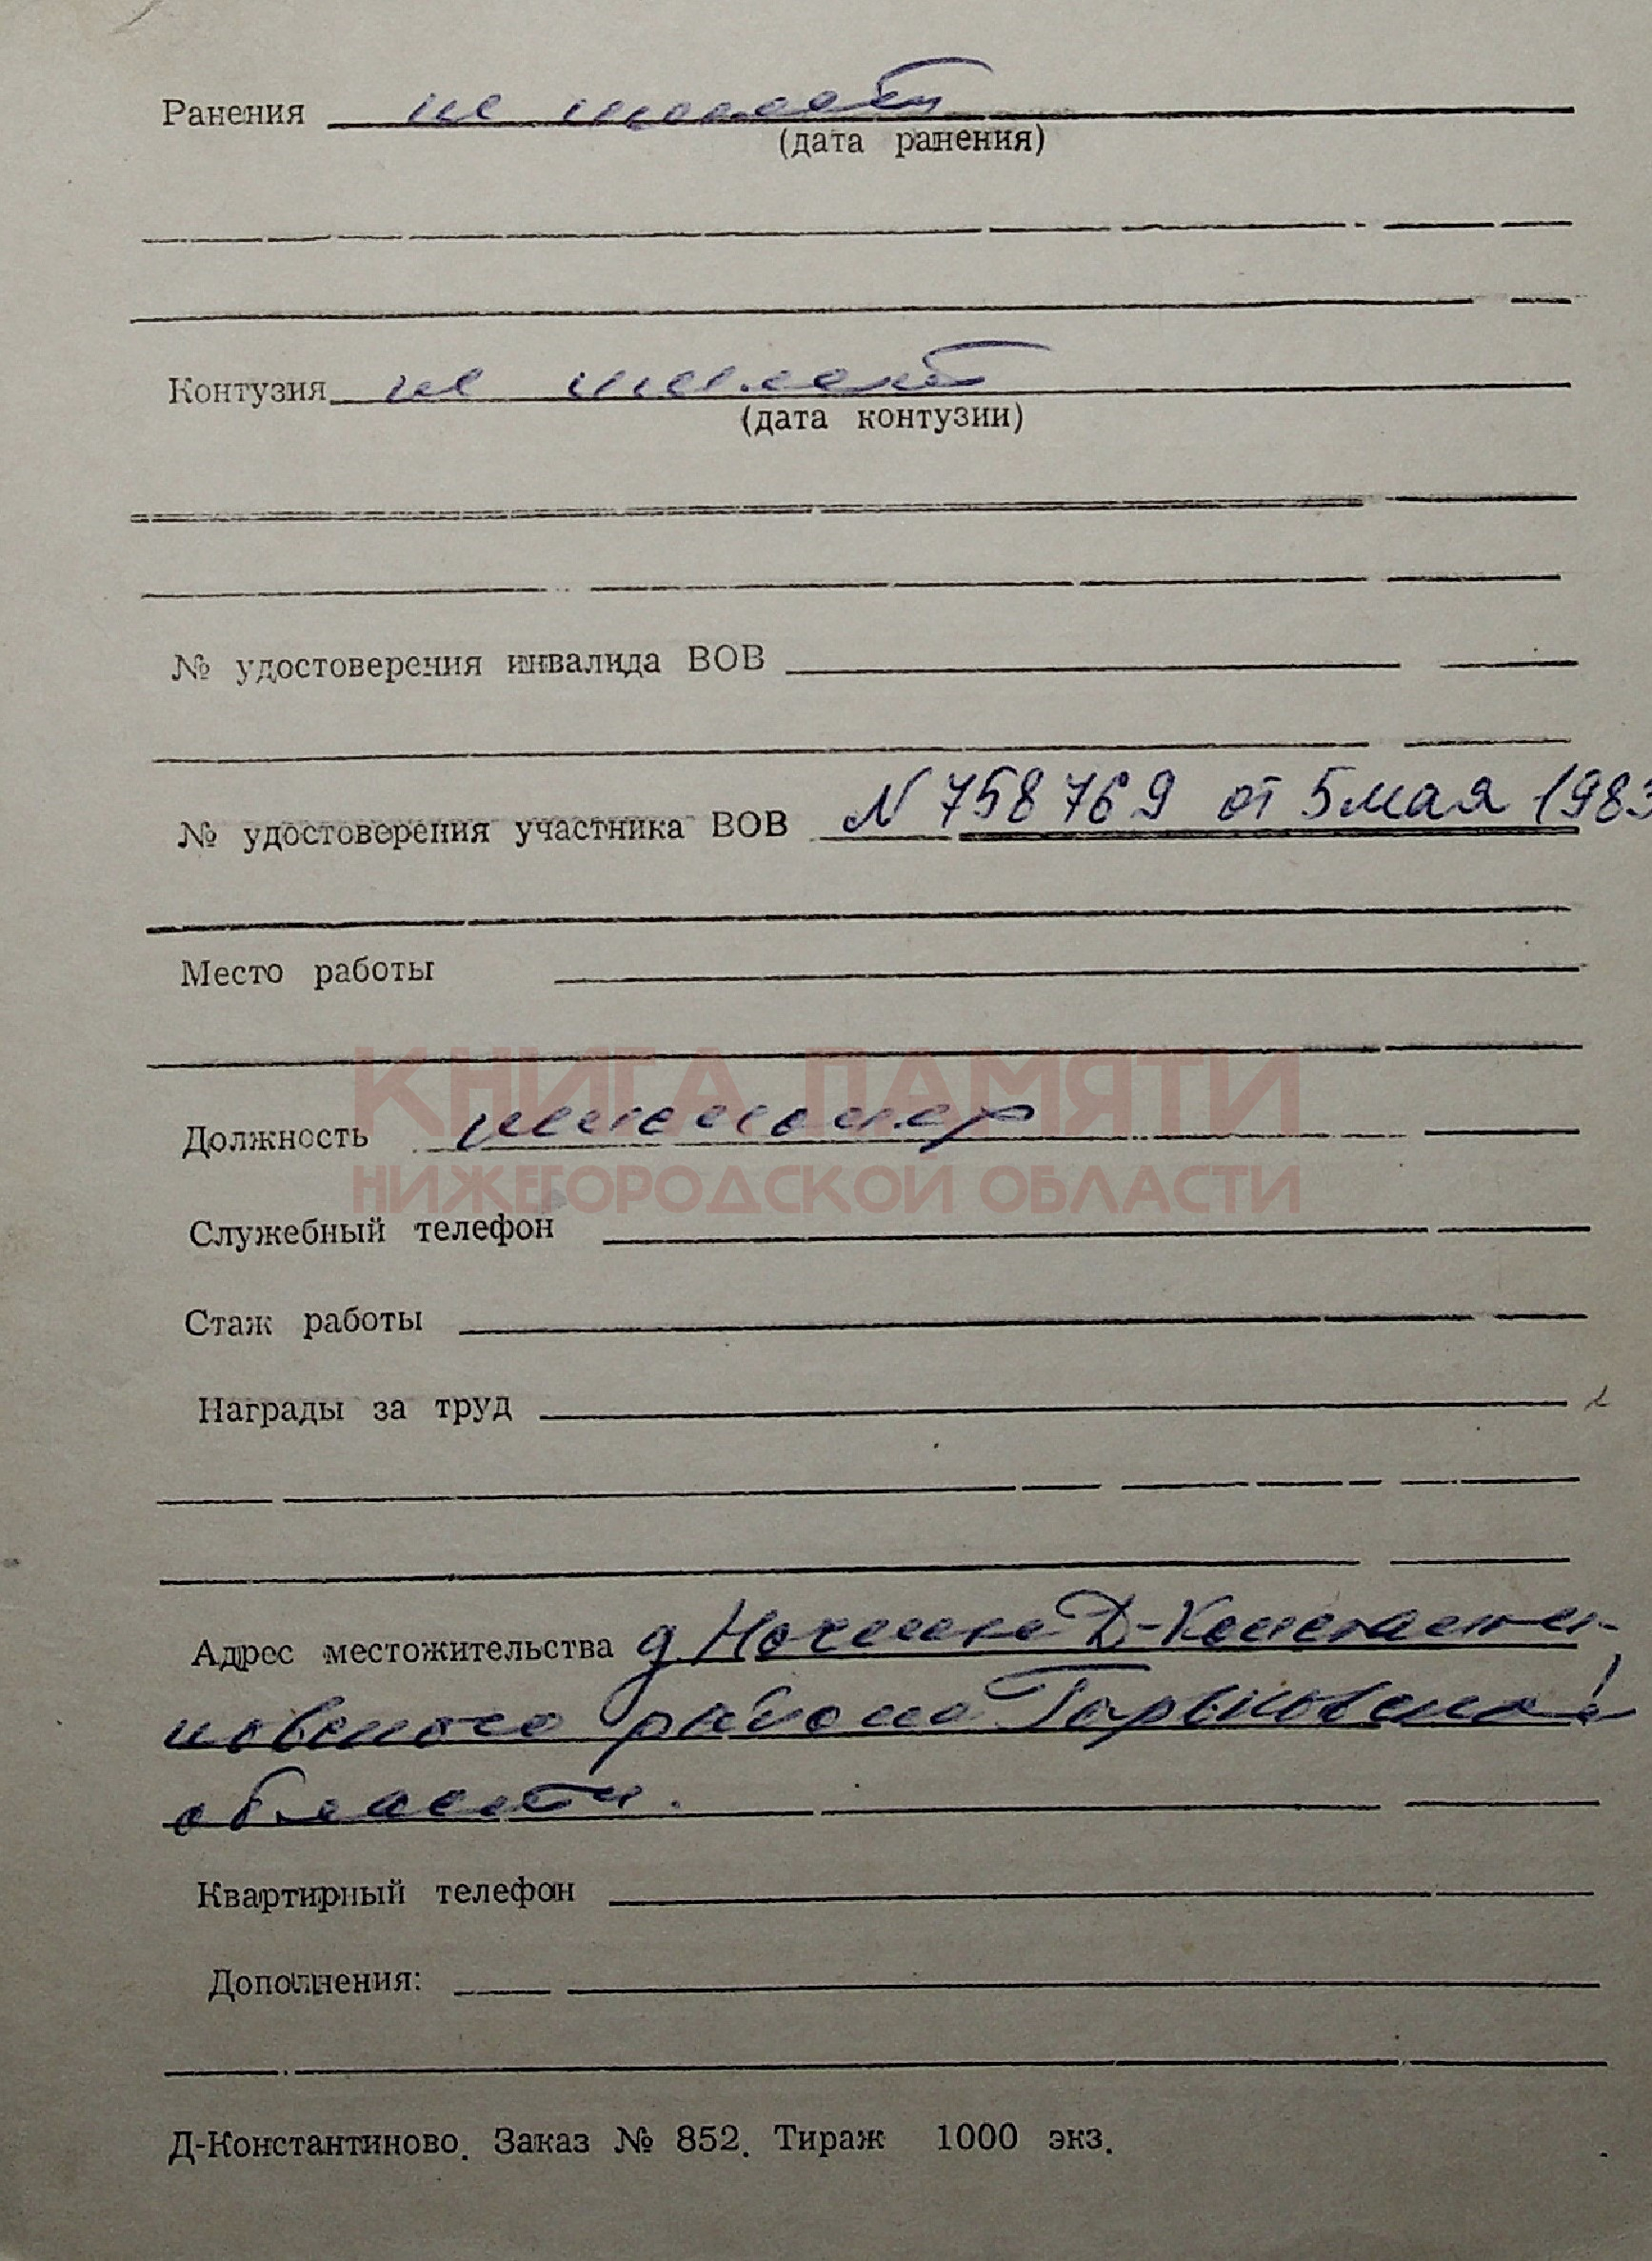 Ранения не имеет
(дата ранения)
Контузия не имеет
(дата контузии)
№ удостоверения инвалида ВОВ
№ удостоверения участника ВОВ N 758769 от 5 мая 1983
Место работы
КНИГА ПАМЯТИ
Должность пенсионер
НИЖЕГОРОДСКОЙ ОБЛАСТИ
Служебный телефон
Стаж работы
Награды за труд
Адрес местожительства д. Д-Константи-
новского района Горьковской
области.
Квартирный телефон
Дополнения:
Д-Константиново. Заказ № 852. Тираж 1000 экз.